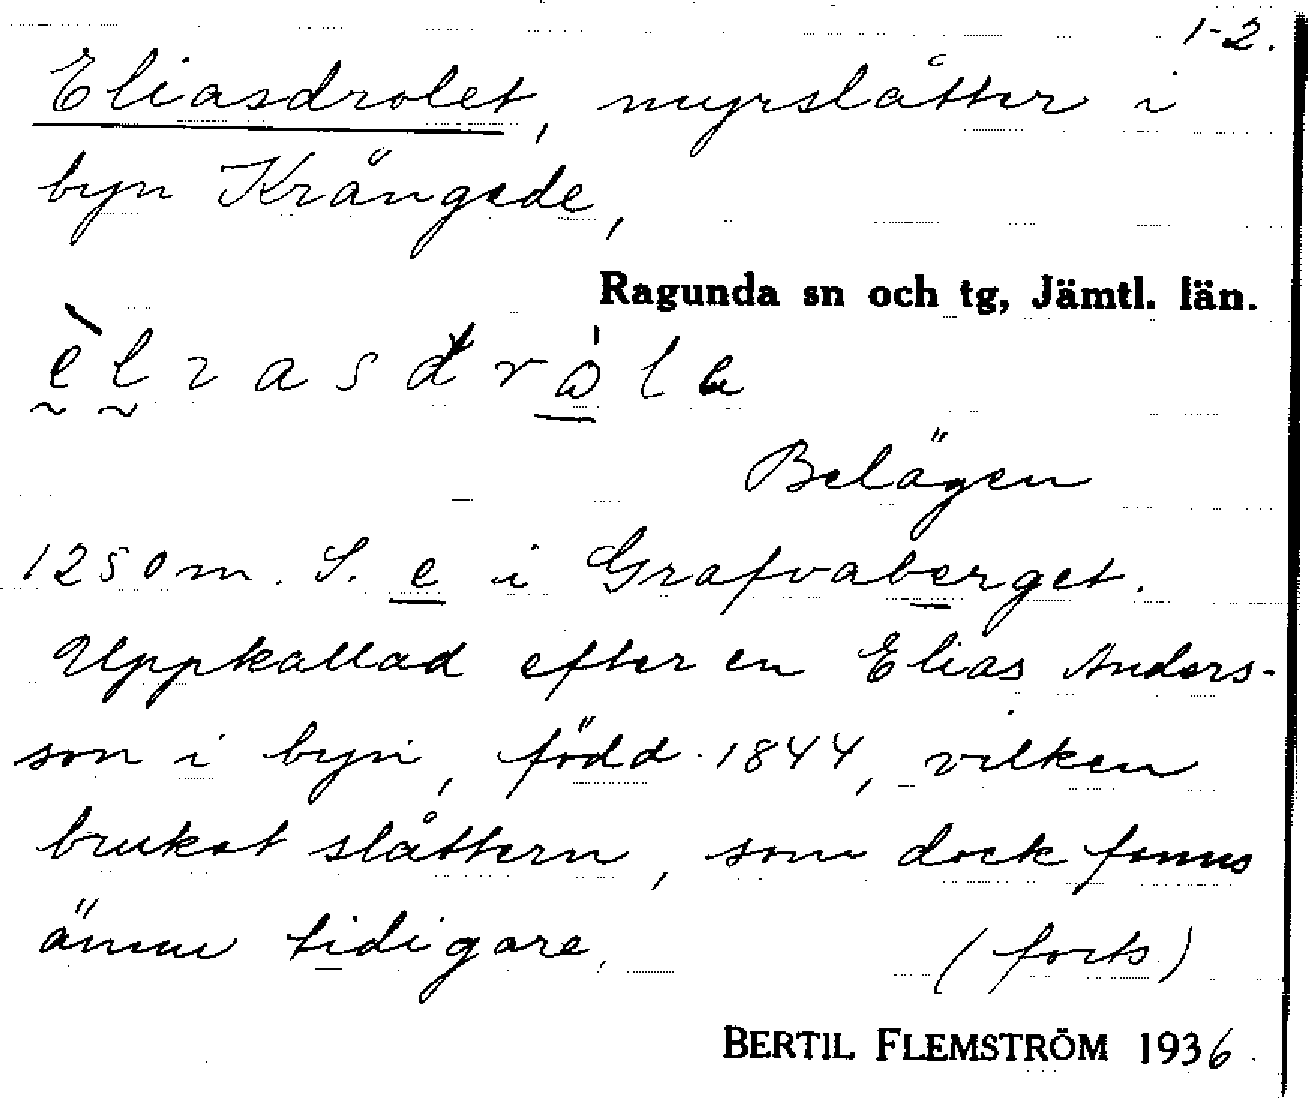 1-2.
Eliasdrolet, myrslåtter i
byn Krångede,
Ragunda sn och tg, Jämtl. län.
Belägen
1250 m. S. e i Grafvaberget.
Uppkallad efter en Elias Anders-
son i byn, född 1844, vilken
brukat slåttern, som dock fanns
ännu tidigare.
(forts)
BERTIL FLEMSTRÖM 1936.